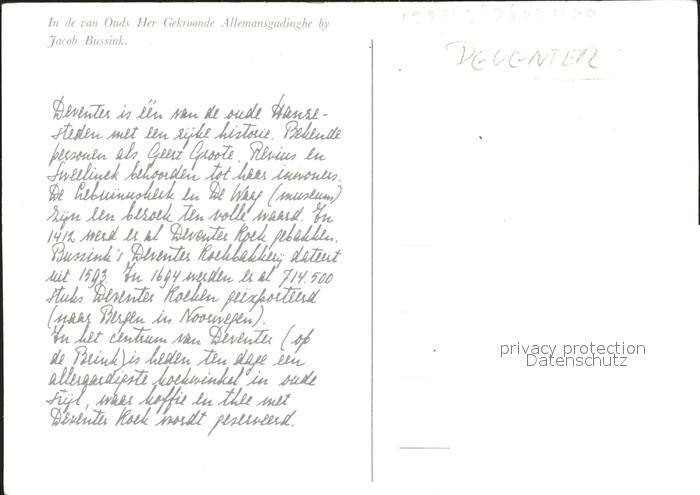 In de van Ouds Her Gekroonde Allemansgadinghe by
Jacob Bussink.
DEVENTER
Deventer is één van de oude Hanze-
steden met een rijke historie. Bekende
personen als Geert Groote, Revius en
Sweelinck behoorden tot haar inwoners.
De Lebuinuskerk en De Waag (museum)
zijn een bezoek ten volle waard. In
1412 werd er al Deventer Koek gebakken.
Bussink's Deventer Koekbakkerij dateert
uit 1593. In 1694 werden er al 714.500
stuks Deventer Koeken geëxporteerd
(naar Bergen in Noorwegen).
In het centrum van Deventer (op
de Brink) is heden ten dage een
alleraardigste koekwinkel in oude
stijl, waar koffie en thee met
Deventer Koek wordt geserveerd.
privacy protection
Datenschutz